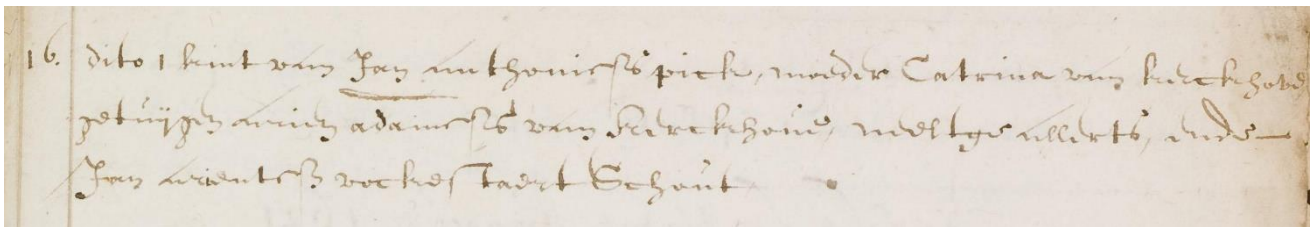 16. dito 1 kint van Jan anthonissz pick, moeder Catrina van kerckhove
getuijgen arien adamessz van kerckhove, neeltge allerts, ende
Jan arentssz Schout